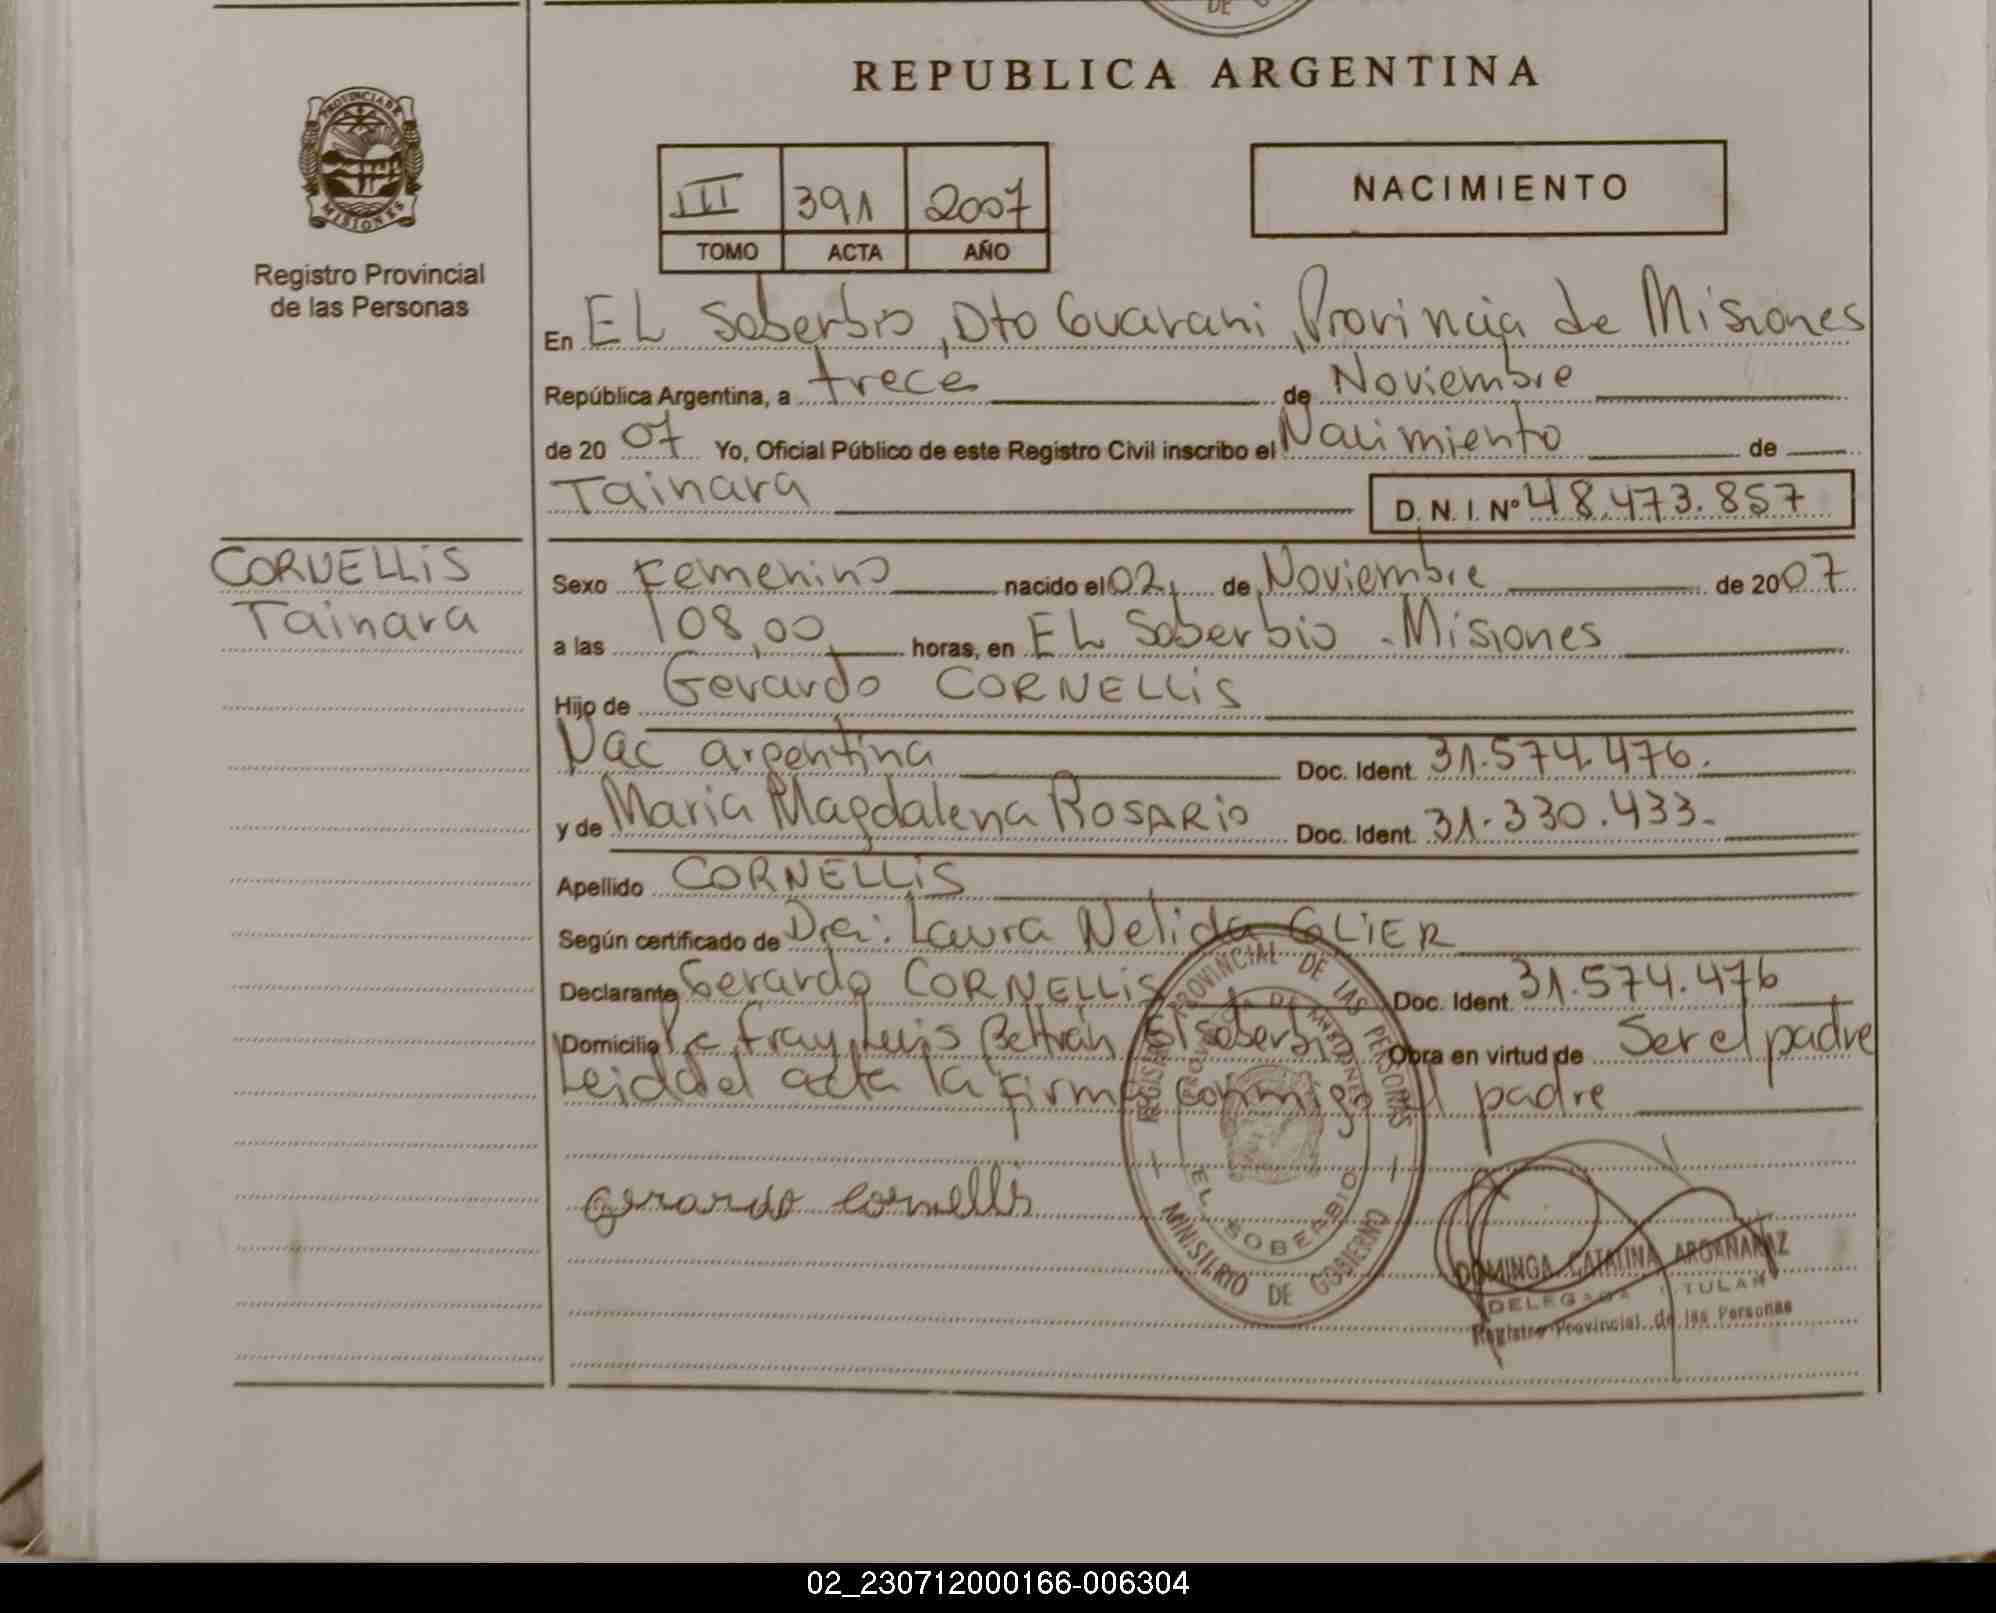 DE
REPUBLICA ARGENTINA
PROVINCIA DE
MISIONES
Registro Provincial
de las Personas
III 391 2007
TOMO ACTA AÑO
NACIMIENTO
En EL Soberbio, Dto Guarani, Provincia de Misiones
República Argentina, a trece de Noviembre
de 2007 Yo, Oficial Público de este Registro Civil inscribo el Nacimiento de
Tainara D. N. I. Nº 48.473.857
CORNELLIS
Tainara
Sexo Femenino nacido el 02 de Noviembre de 2007
a las 08,00 horas, en EL Soberbio - Misiones
Hijo de Gerardo CORNELLIS
Nac argentina Doc. Ident. 31.574.476.
y de Maria Magdalena ROSARIO Doc. Ident. 31.330.433.
Apellido CORNELLIS
Según certificado de Dra: Laura Nelida GLIER
Declarante Gerardo CORNELLIS Doc. Ident. 31.574.476
Domicilio Pc Fray Luis Beltrán El Soberbio Obra en virtud de Ser el padre
Leida el acta la firma conmigo el padre
Gerardo Cornellis
REGISTRO PROVINCIAL DE LAS PERSONAS
PROVINCIA DE MISIONES
EL SOBERBIO
MINISTERIO DE GOBIERNO
DOMINGA CATALINA ARGAÑARAZ
DELEGADA TITULAR
Registro Provincial de las Personas
02_230712000166-006304